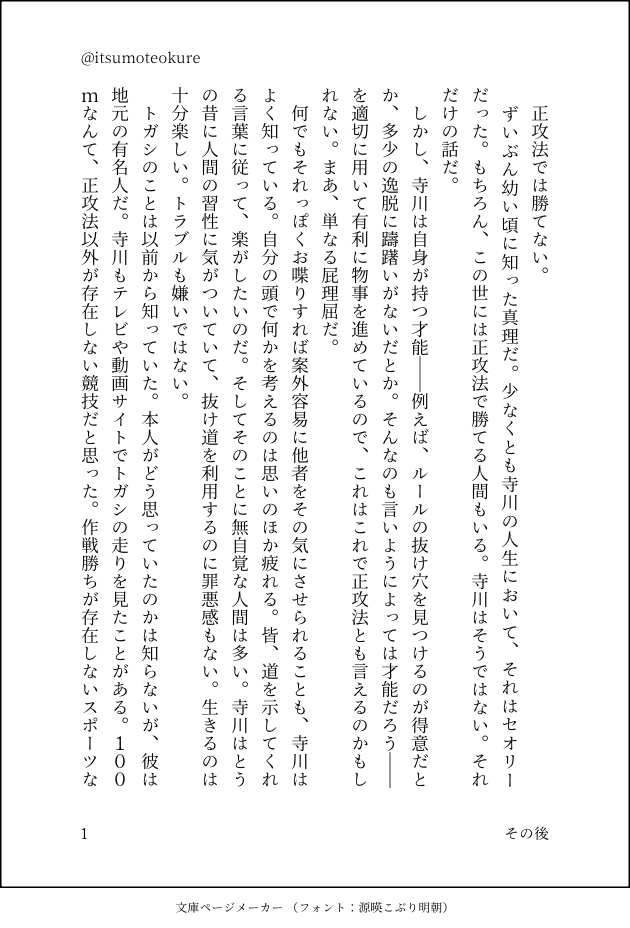 @itsumoteokure
　正攻法では勝てない。
　ずいぶん幼い頃に知った真理だ。少なくとも寺川の人生において、それはセオリー
だった。もちろん、この世には正攻法で勝てる人間もいる。寺川はそうではない。それ
だけの話だ。
　しかし、寺川は自身が持つ才能――例えば、ルールの抜け穴を見つけるのが得意だと
か、多少の逸脱に躊躇いがないだとか。そんなのも言いようによっては才能だろう――
を適切に用いて有利に物事を進めているので、これはこれで正攻法とも言えるのかもし
れない。まあ、単なる屁理屈だ。
　何でもそれっぽくお喋りすれば案外容易に他者をその気にさせられることも、寺川は
よく知っている。自分の頭で何かを考えるのは思いのほか疲れる。皆、道を示してくれ
る言葉に従って、楽がしたいのだ。そしてそのことに無自覚な人間は多い。寺川はとう
の昔に人間の習性に気がついていて、抜け道を利用するのに罪悪感もない。生きるのは
十分楽しい。トラブルも嫌いではない。
　トガシのことは以前から知っていた。本人がどう思っていたのかは知らないが、彼は
地元の有名人だ。寺川もテレビや動画サイトでトガシの走りを見たことがある。１００
ｍなんて、正攻法以外が存在しない競技だと思った。作戦勝ちが存在しないスポーツな
その後
1
文庫ページメーカー （フォント：源暎こぶり明朝）